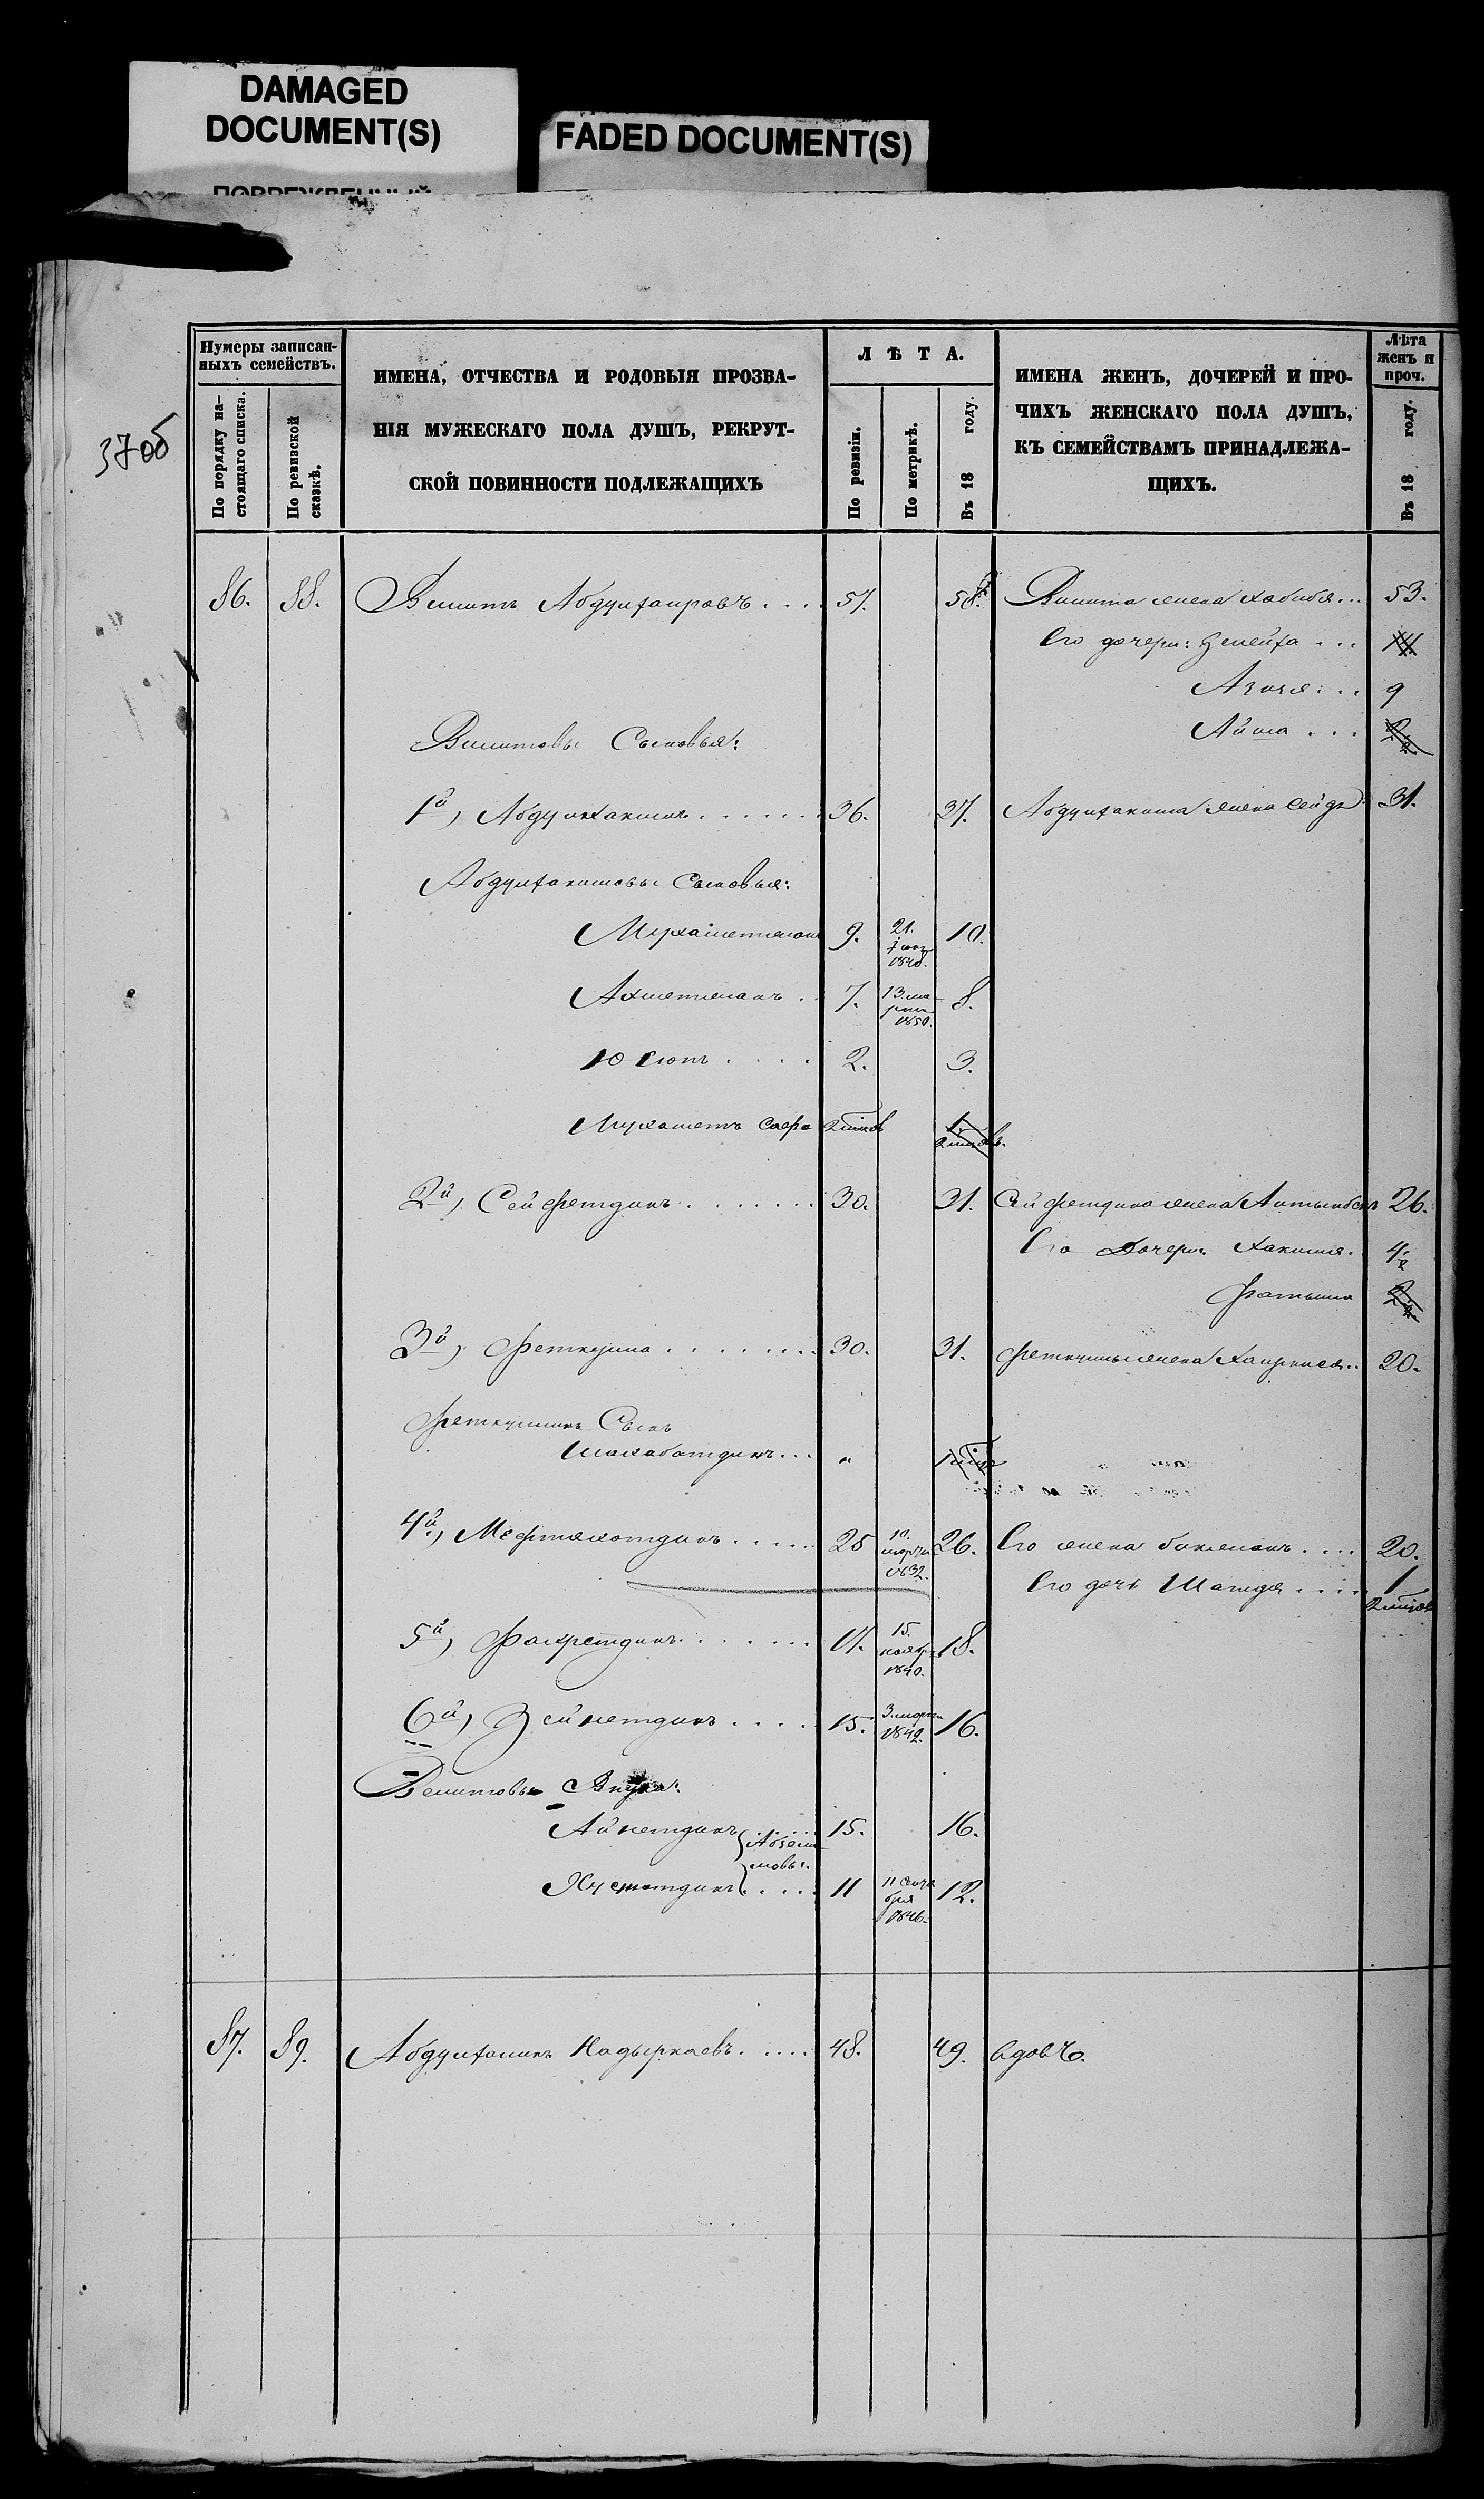 DAMAGED
DOCUMENT(S)
FADED DOCUMENT(S)
37об
Нумеры записан-
ныхъ семействъ.
По порядку на-
стоящаго списка.
По ревизской
сказкѣ.
ИМЕНА, ОТЧЕСТВА И РОДОВЫЯ ПРОЗВА-
НІЯ МУЖЕСКАГО ПОЛА ДУШЪ, РЕКРУТ-
СКОЙ ПОВИННОСТИ ПОДЛЕЖАЩИХЪ
ЛѢТА.
По ревизіи.
По метрикѣ.
Въ 18 году.
ИМЕНА ЖЕНЪ, ДОЧЕРЕЙ И ПРО-
ЧИХЪ ЖЕНСКАГО ПОЛА ДУШЪ,
КЪ СЕМЕЙСТВАМЪ ПРИНАДЛЕЖА-
ЩИХЪ.
Лѣта
женъ и
проч.
Въ 18 году.
86. 88. Вилитъ Абдулгаировъ.... 57. 58. Вилита жена Хабибя... 53.
Его дочери: Зелейха ...
Азизя... 9
Айша ... 2
Вилитовы Сыновья:
1й, Абдулхакимъ....... 36. 37. Абдулхакима жена Сейде 31.
Абдулхакимовы Сыновья:
Мухаметжанъ 9. 21. Іюня 1848. 10.
Ахметжанъ . 7. 13. марта 1850. 8.
Юсюпъ .... 2. 3.
Мухаметъ Сафа
2й, Сейфетдинъ....... 30. 31. Сейфетдина жена Алтынбика 26.
Его Дочери: Хакимя. 4
Фатыма 2
3й, Феткулла ........ 30. 31. Феткуллы жена Хаирниса.. 20.
Феткуллинъ Сынъ
Шахабатдинъ... „
4й, Мефтахатдинъ..... 25 10. марта 1832. 26. Его жена Бикжанъ.... 20.
Его дочь Шамдя .... 1
5й, Фахретдинъ....... 17. 15. ноября 1840. 18.
6й, Зейнетдинъ .... 15. 3. марта 1842. 16.
Велитовы Внуки:
Айнетдинъ..... 15. 16.
Хусметдинъ..... 11 11 Сентября 1846. 12.
87. 89. Абдулгалимъ Кадыркаевъ..... 48. 49. вдовъ.